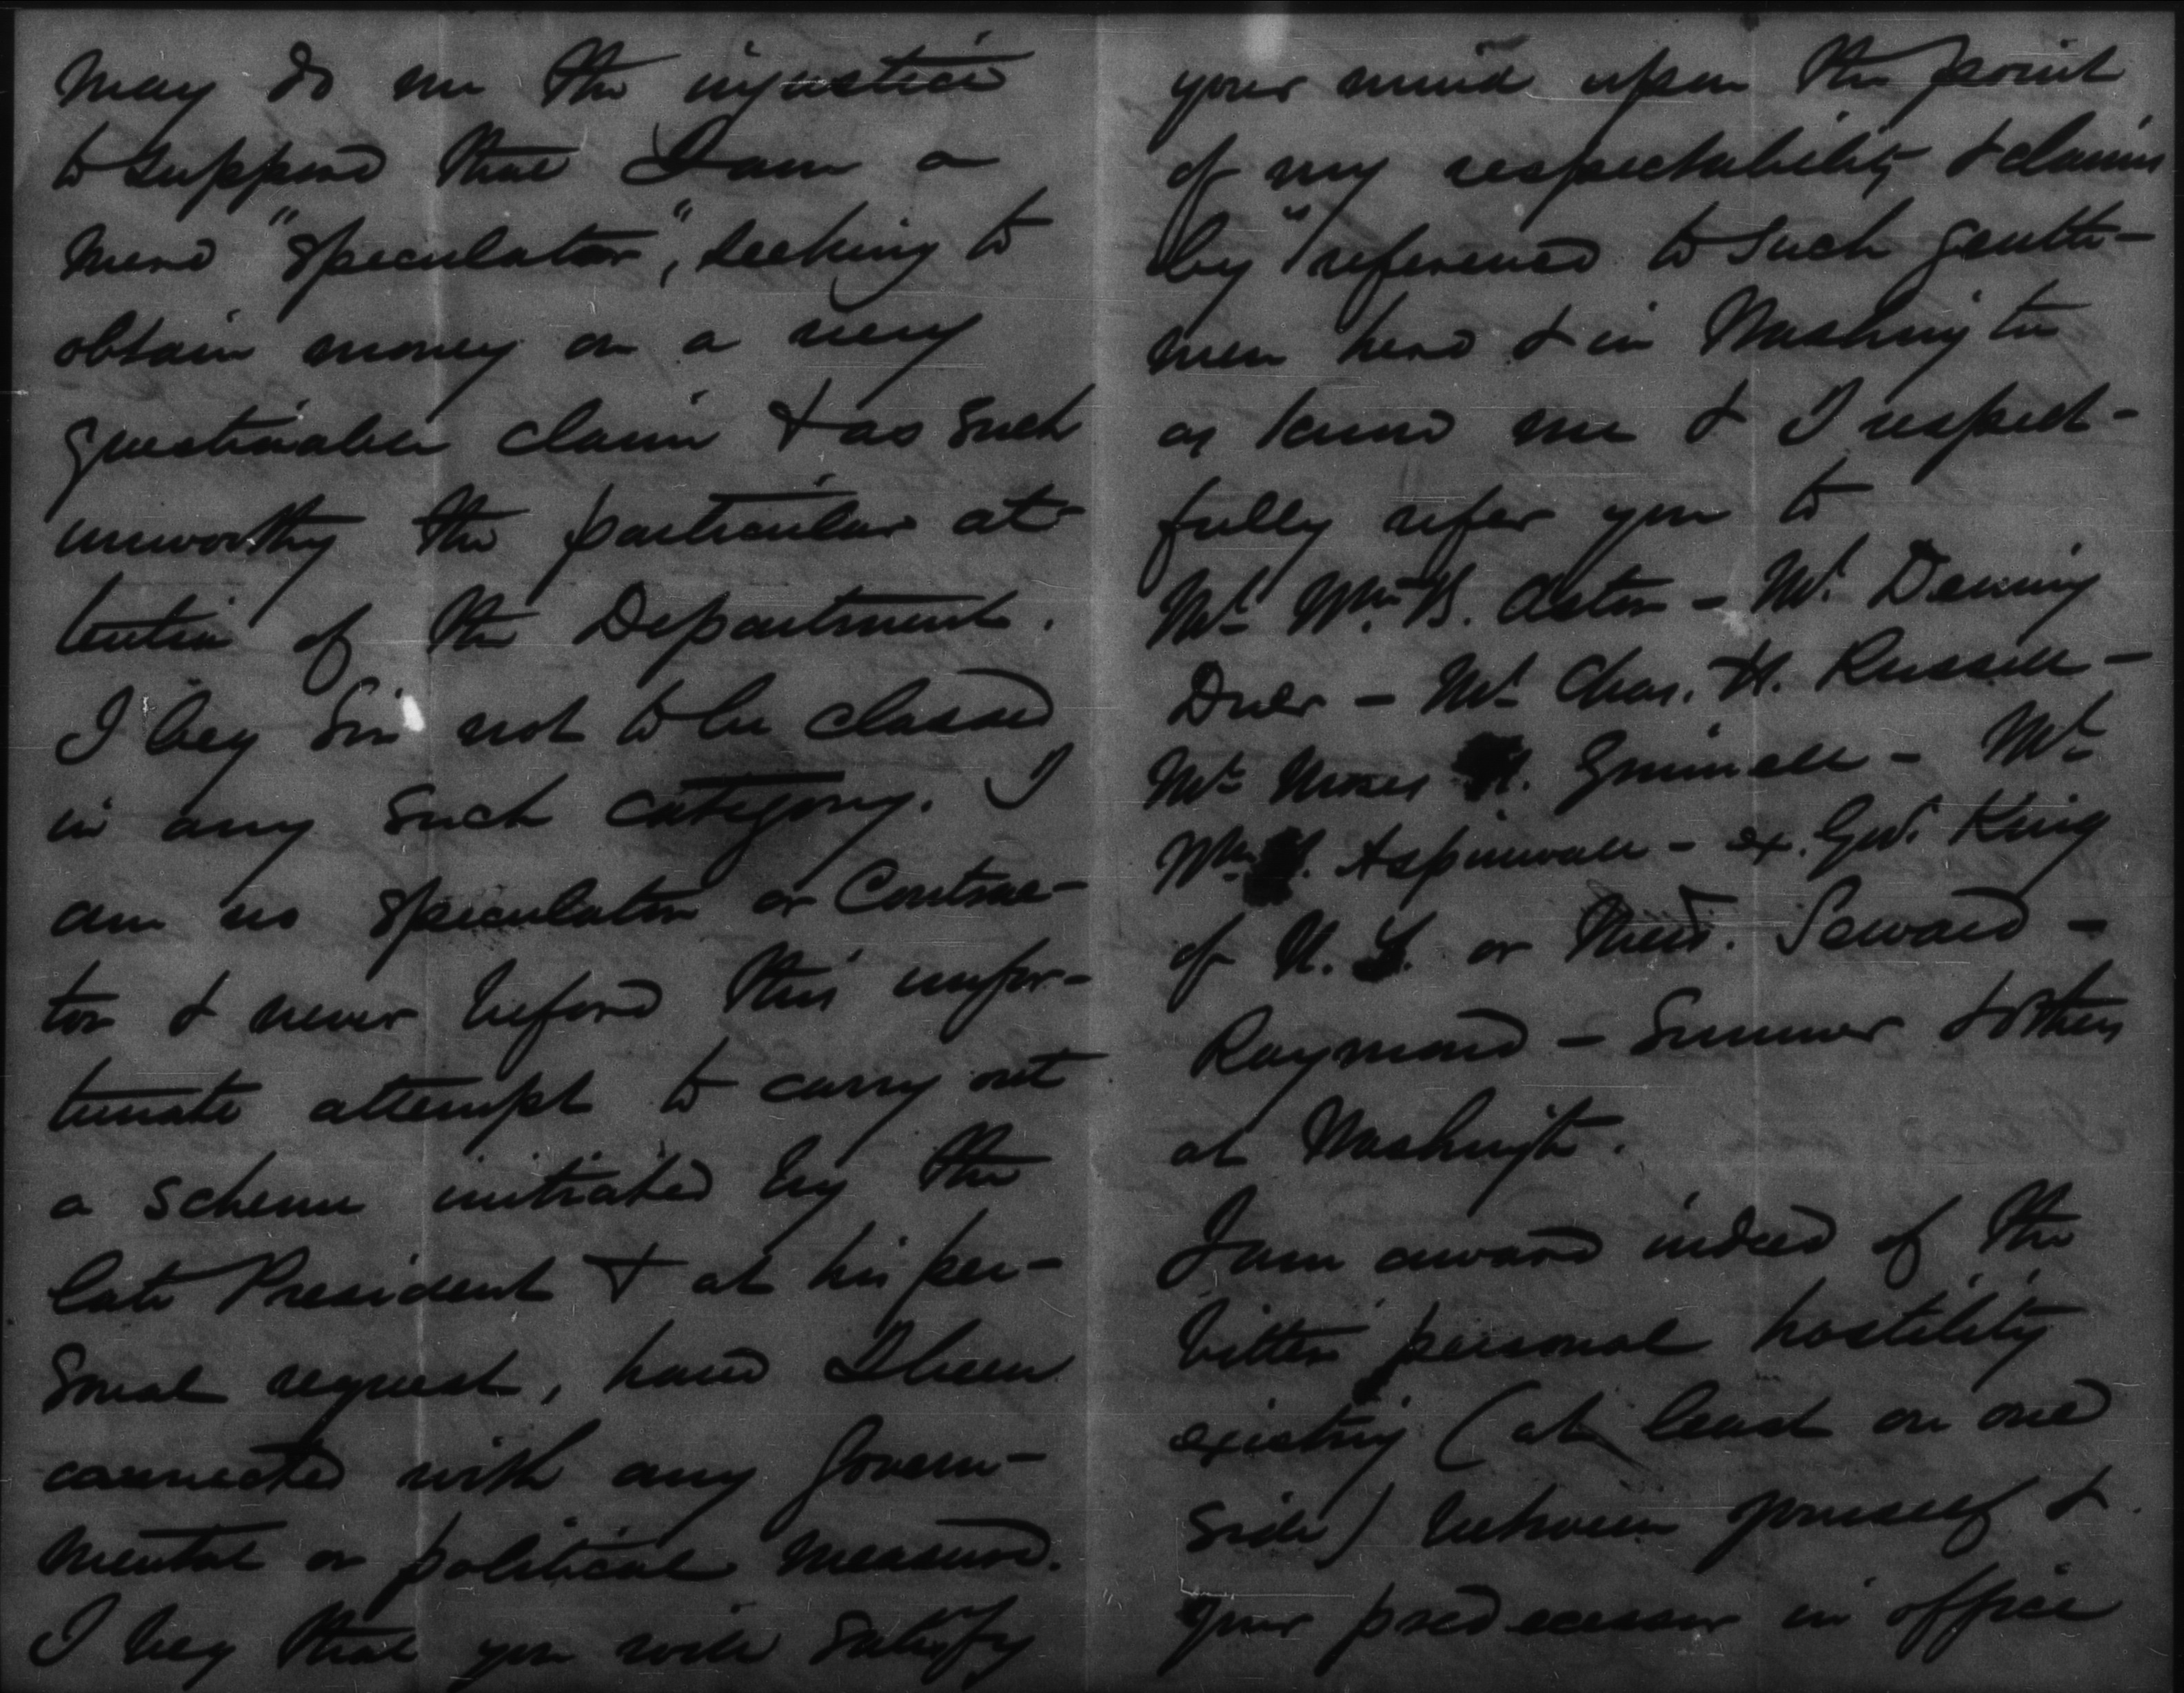 may do me the injustice
to suppose that I am a
mere "speculator", seeking to
obtain money on a very
questionable claim & as such
unworthy the particular at-
tention of the Department.
I beg Sir not to be classed
in any such category. I
am no speculator or Contrac-
tor & never before this unfor-
tunate attempt to carry out
a scheme initiated by the
late President & at his per-
sonal request, have I been
connected with any Govern-
mental or political measure.
I beg that you will satisfy
your mind upon the point
of my respectability & claims
by "reference to such gentle-
men here & in Washington
as know me & I respect-
fully refer you to
Mr. Wm. B. Astor - Mr. Denning
Duer - Mr. Chas. H. Russell -
Mr. Moses H. Grinnell - Mr.
Wm. H. Aspinwall - ex. Gov. King
of N. Y. or Messrs. Seward -
Raymond - Sumner & others
at Washingt.
I am aware indeed of the
bitter personal hostility
existing (at least on one
side) between yourself &
your predecessor in office